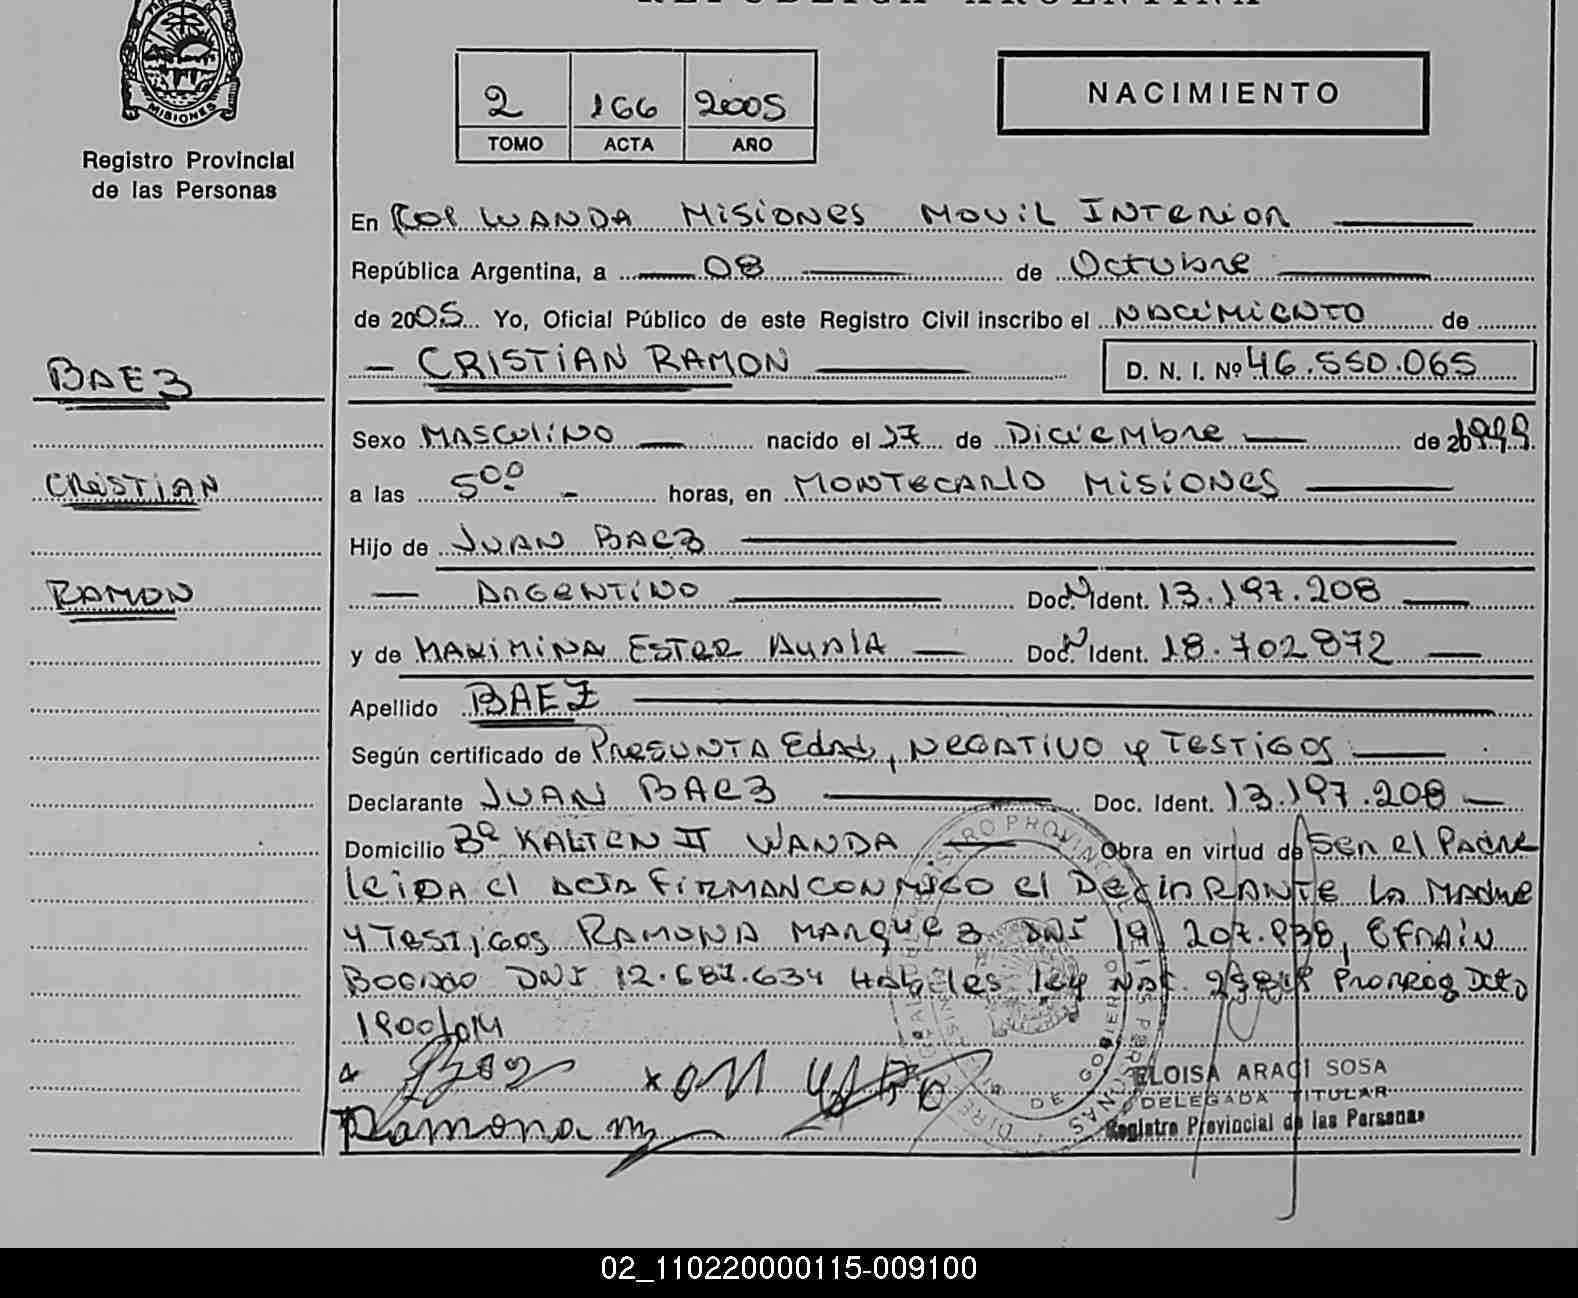 REPUBLICA ARGENTINA
MISIONES
Registro Provincial
de las Personas
2 166 2005
TOMO ACTA AÑO
NACIMIENTO
En Col WANDA MisiONes MOVIL INTeRioR
República Argentina, a 08 de Octubre
de 2005 Yo, Oficial Público de este Registro Civil inscribo el NaciMieNTO de
CRISTiAN RAMON D. N. I. Nº 46.550.065
BAEZ
CRiSTiAN
RAMON
Sexo MASCuliNO nacido el 17 de Diciembre de 1999
a las 5:00 horas, en MONTECARlO MisiONes
Hijo de JUAN BAeZ
ARGENTiNO Doc. Ident. 13.197.208
y de MAXiMiNA ESTER AyAlA Doc. Ident. 18.702872
Apellido BAEZ
Según certificado de PReSUNTA EdAd, NeGATIVO y TeSTiGOS
Declarante JUAN BAeZ Doc. Ident. 13.197.208
Domicilio Bº KALTEN II WANDA Obra en virtud de SeR el PAdRe
leiDA el ACTA FiRMAN CONMiGO el DeClARANTE lA MAdRe
y TeSTiGOS RAMONA MARQUeZ DNI 19 207. , EFRAiN
DNI 12.687.634 ley NAC. Dcto
REGISTRO PROVINCIAL DE LAS PERSONAS
ELOISA ARACI SOSA
DELEGADA TITULAR
Ramona
Registro Provincial de las Personas
02_110220000115-009100